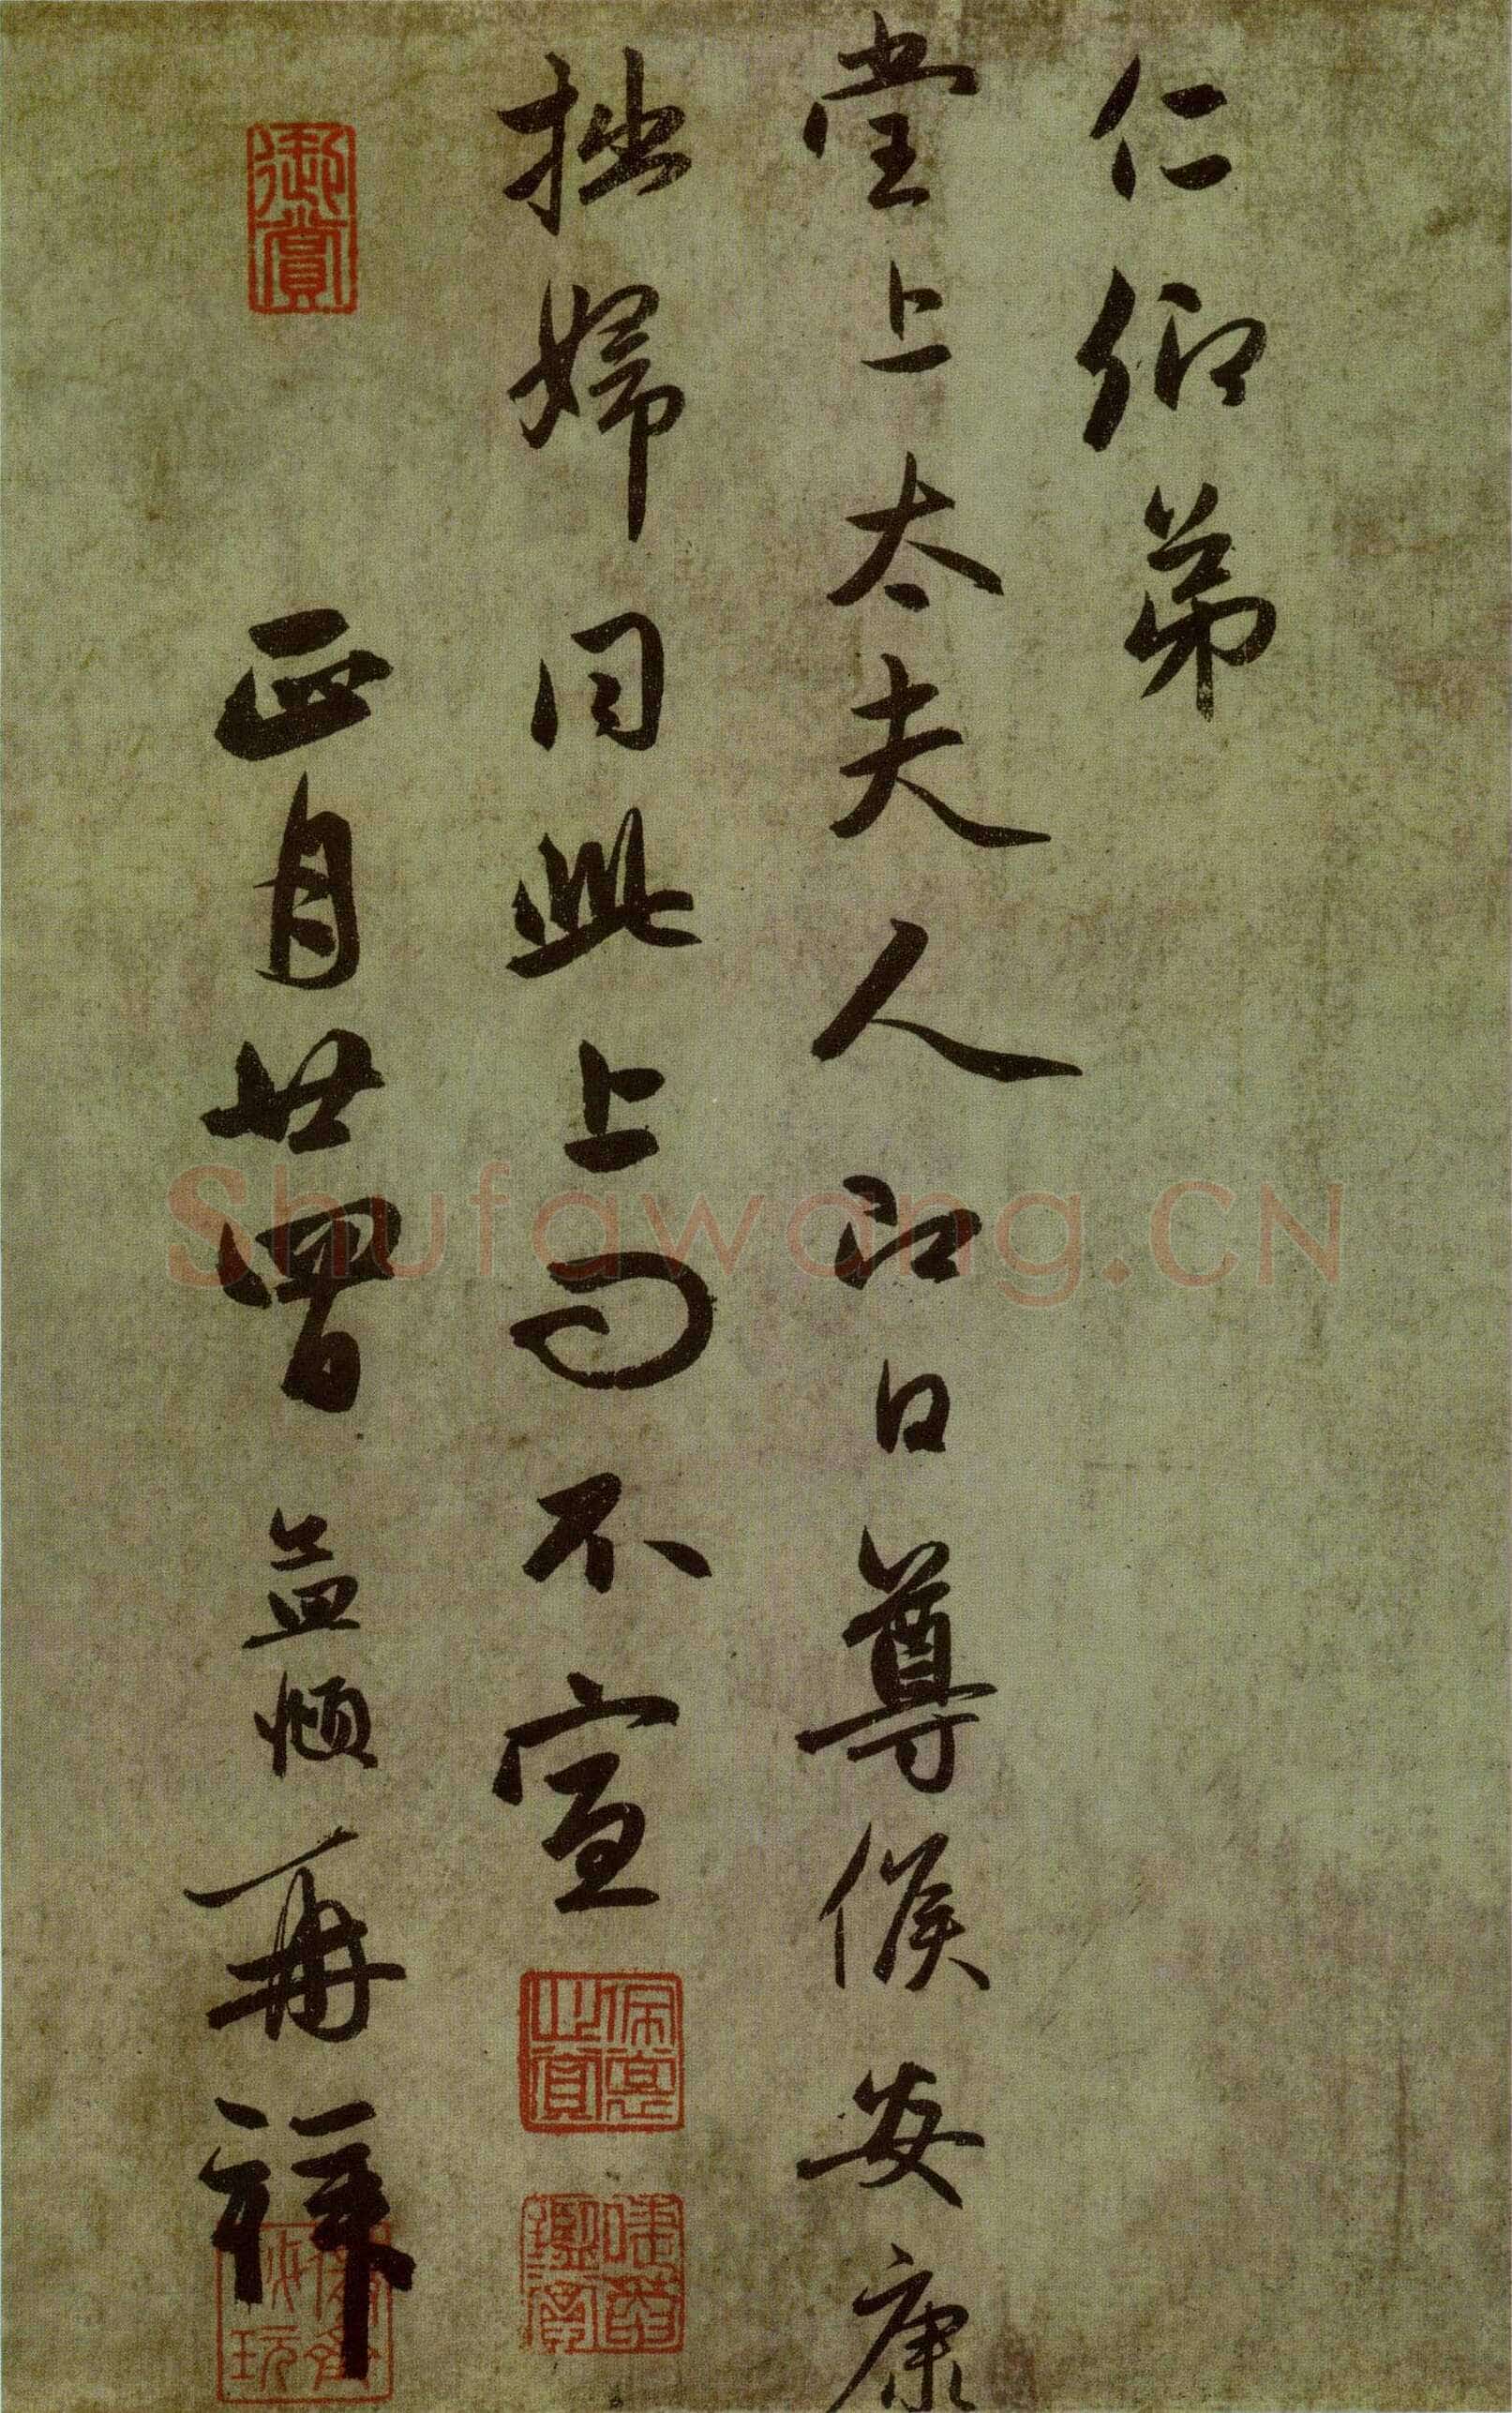 仁卿弟
堂上太夫人即日尊候安康
拙婦同此上問不宣
正月廿四日孟頫再拜
御賞
Shufawang.CN